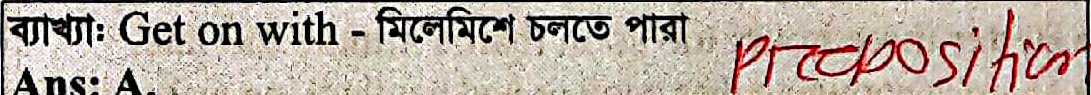 ব্যাখ্যা: Get on with - মিলেমিশে চলতে পারা
preposition
Ans: A.